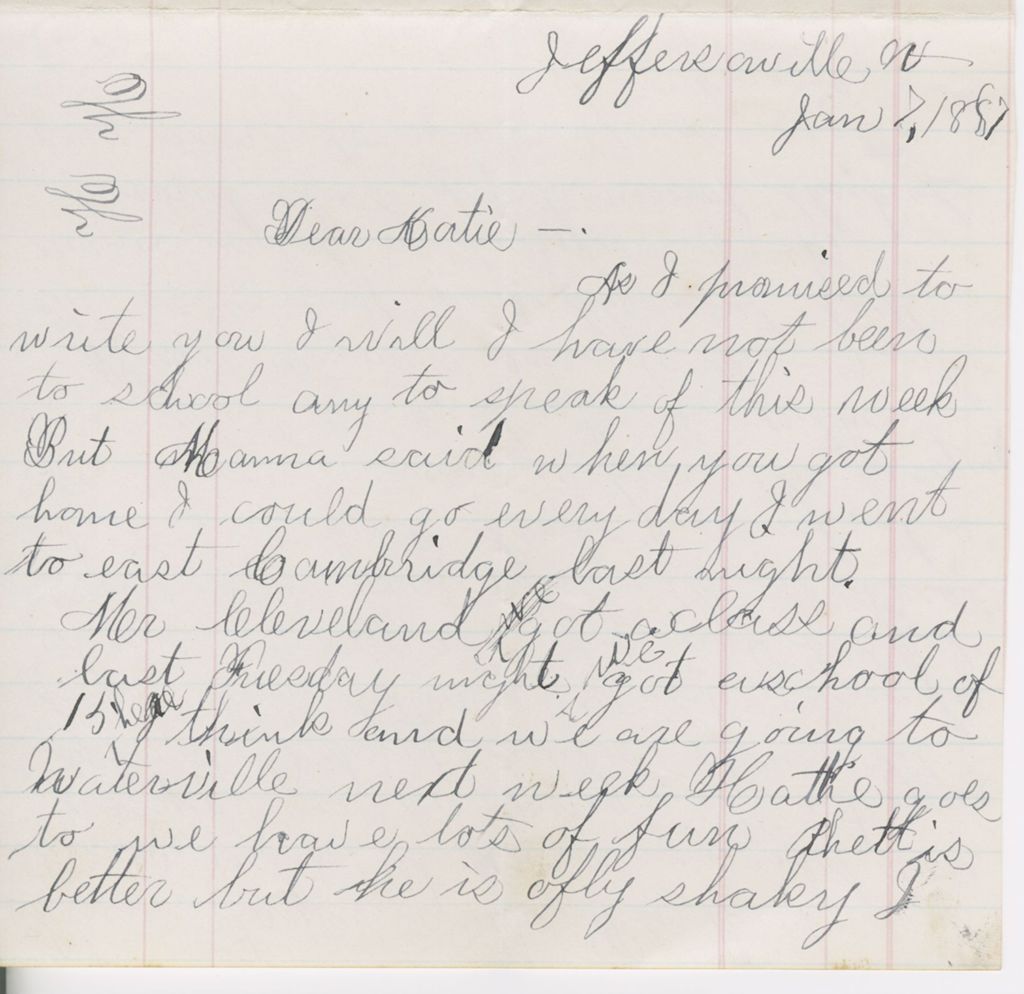 Jeffersonville Vt
Jan 7, 1887
Dear Katie —.
As I promised to
write you I will I have not been
to school any to speak of this week
But Mamma said when you got
home I could go every day I went
to east Cambridge last night.
Mr Cleveland got a class and
last Tuesday night we got a school of
15 here think and we are going to
Waterville next week Hattie goes
to we have lots of fun Rhett is
better but he is ofly shaky I